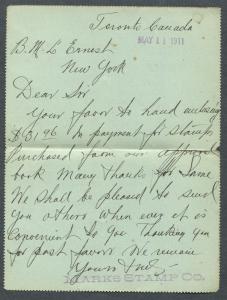 Toronto Canada
MAY 11 1911
B. M. L Ernest
New York
Dear Sir
Your favor to hand enclosing
$3.96 in payment for Stamps
Purchased from our approval
book Many Thanks for Same
We shall be pleased to send
you others when ever it is
Convenient to you Thanking you
for past favor. We remain
Yours Truly
MARKS STAMP CO.